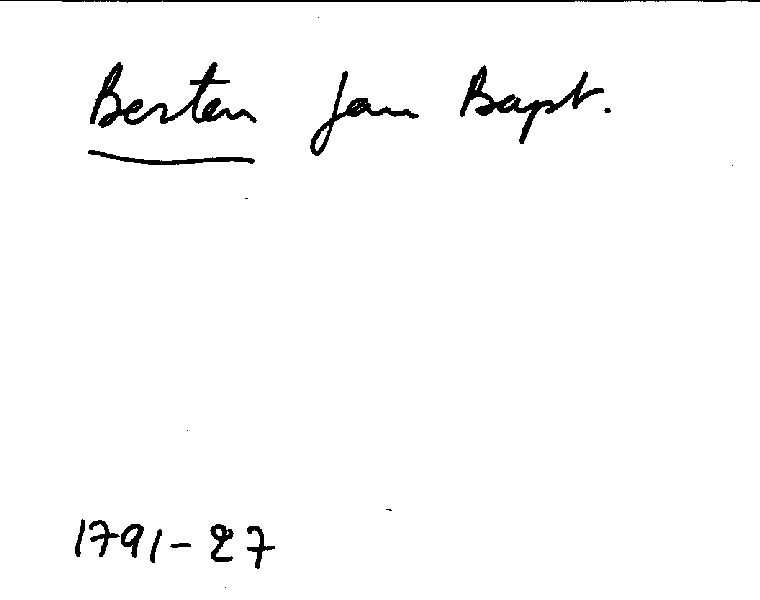 Berten Jan Bapt.
1791-27